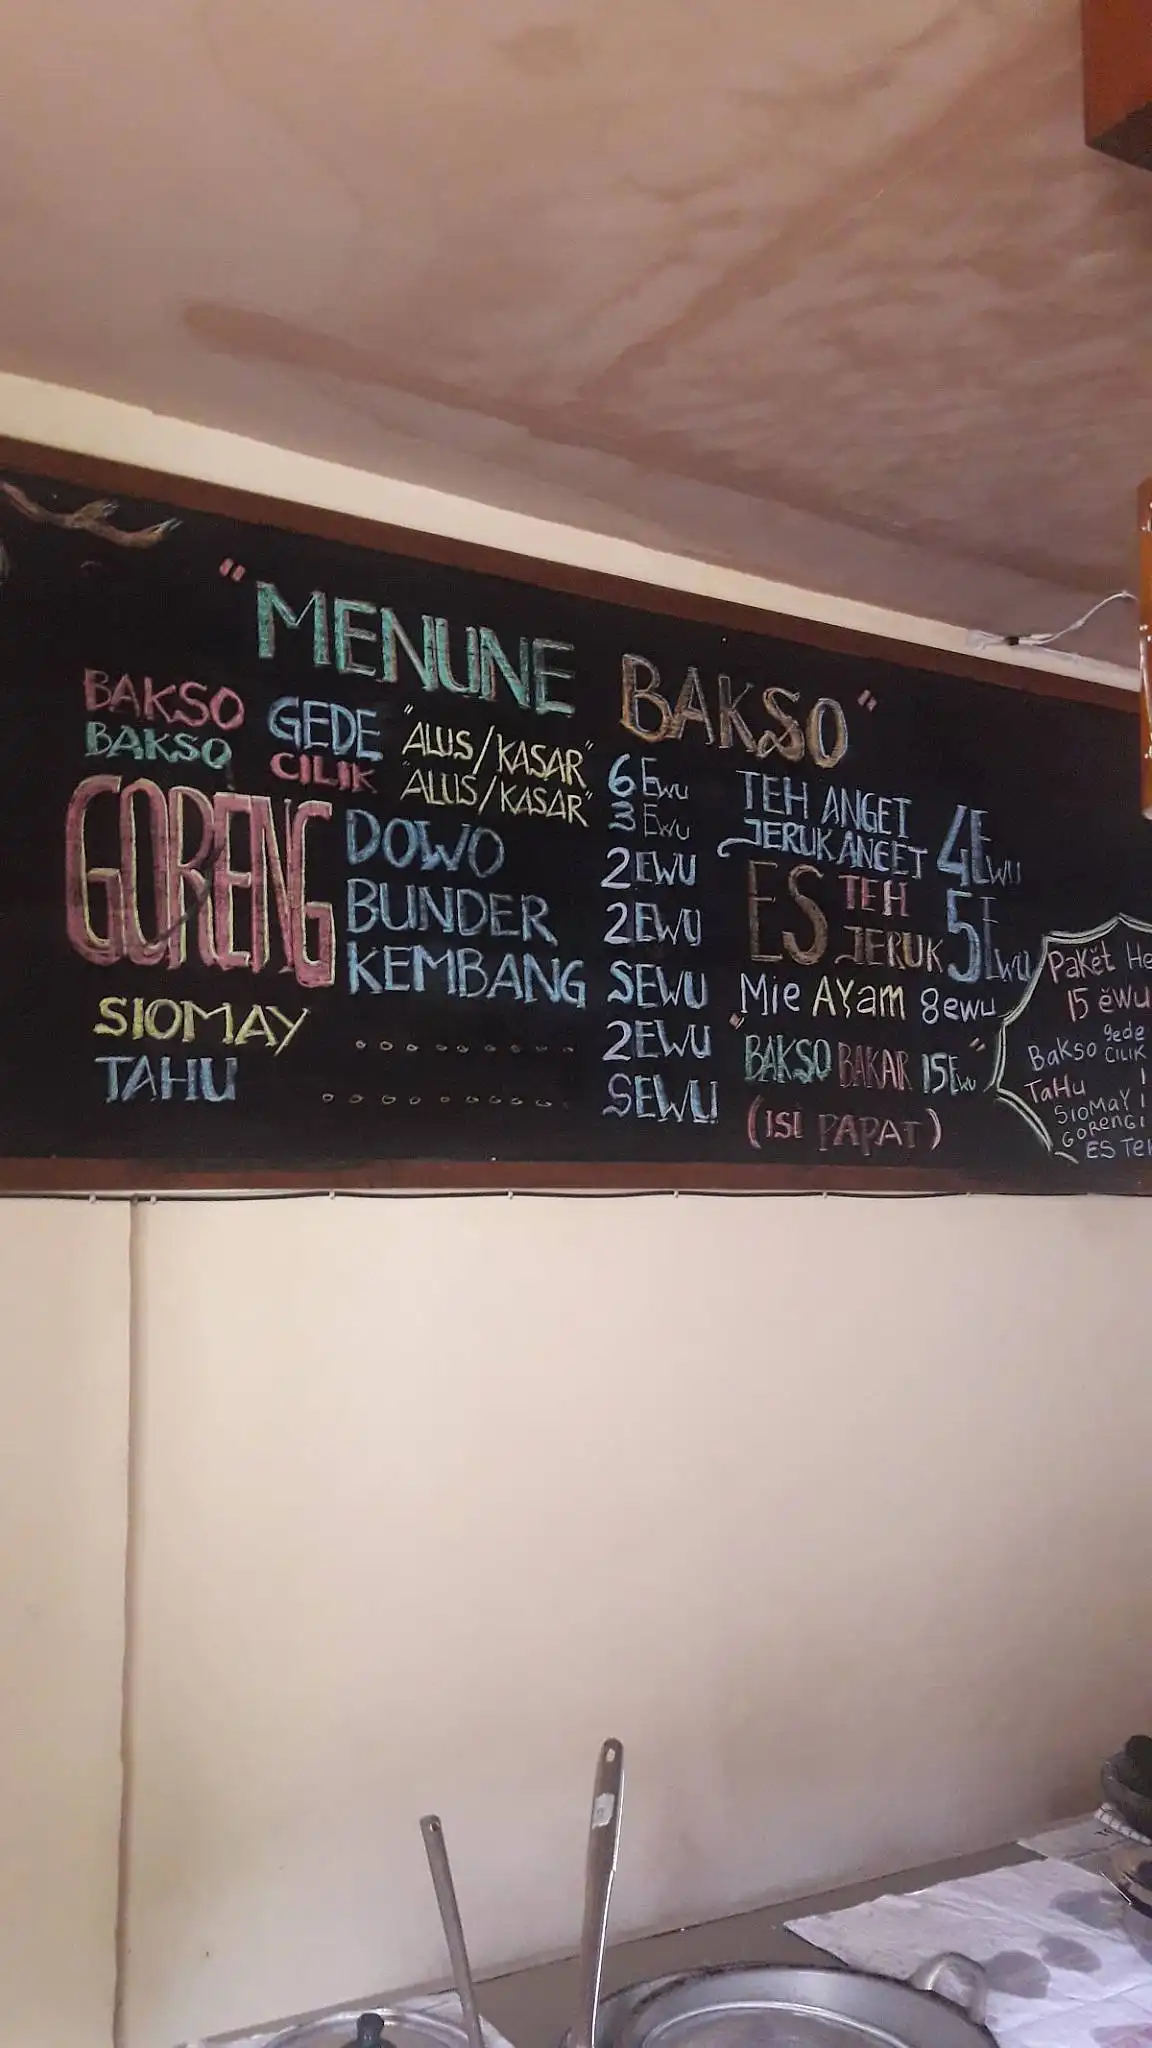 "MENUNE BAKSO"
BAKSO GEDE "ALUS/KASAR" 6EWU
BAKSO CILIK "ALUS/KASAR" 3EWU
GORENG DOWO 2EWU
BUNDER 2EWU
KEMBANG SEWU
SIOMAY ......... 2EWU
TAHU .......... SEWU
TEH ANGET
JERUK ANGET 4EWU
ES TEH
JERUK 5EWU
Mie AYam 8ewu
"BAKSO BAKAR 15EWU"
(ISI PAPAT)
PaKět He
15 ěwu
Bakso gede
CILIK
TaHu 1
SIOMAY 1
GORENG 1
ES TeH